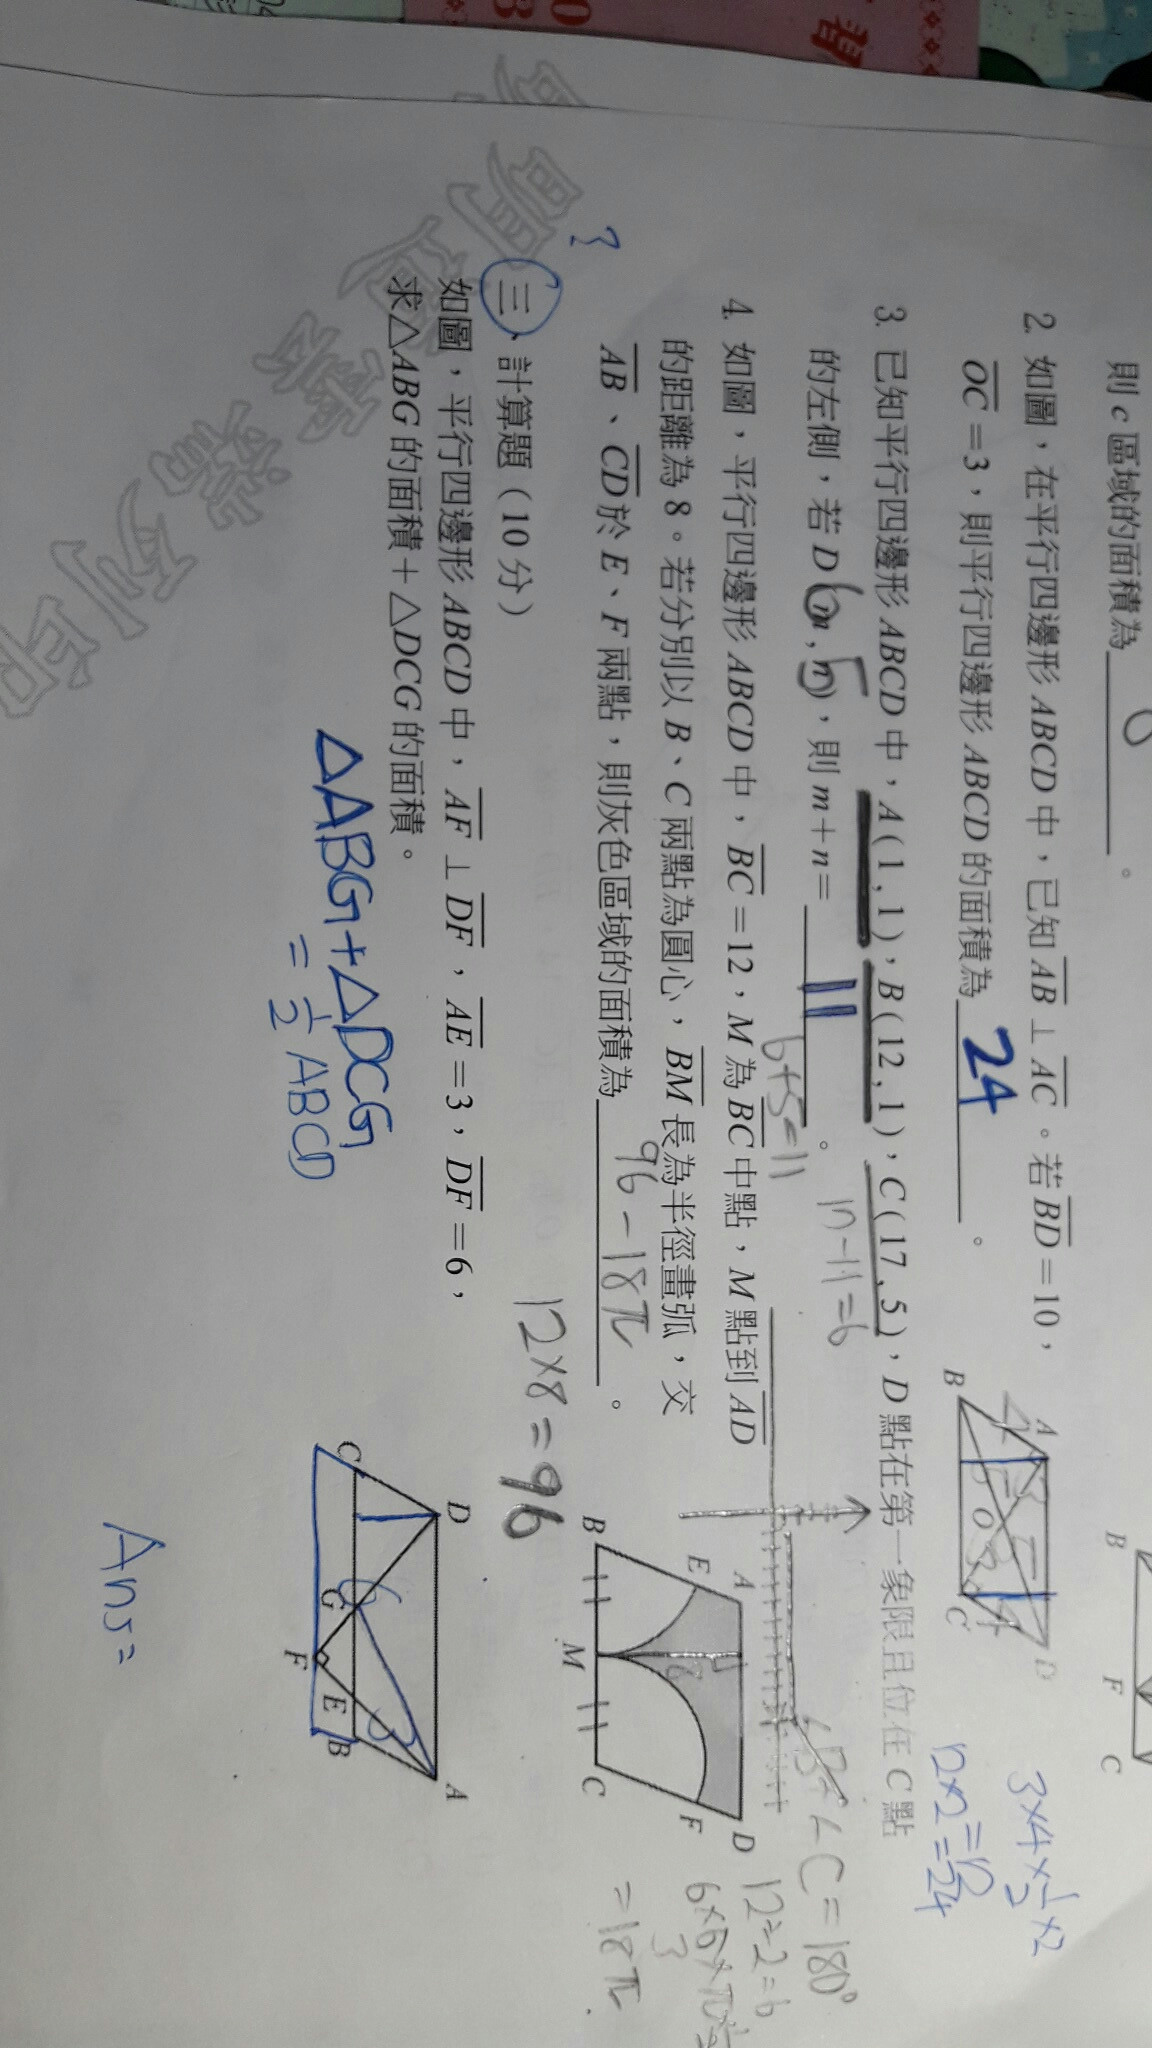 則 c 區域的面積為 ________。
2. 如圖,在平行四邊形 ABCD 中,已知 AB ⊥ AC。若 BD = 10,
OC = 3,則平行四邊形 ABCD 的面積為 24 。
3×4×1/2×2
12×2=24
A D O B C
B F C
3. 已知平行四邊形 ABCD 中,A(1, 1)、B(12, 1)、C(17, 5),D 點在第一象限且位在 C 點
的左側,若 D(m, n),則 m+n= 11 。
6+5=11
4. 如圖,平行四邊形 ABCD 中,BC = 12,M 為 BC 中點,M 點到 AD
的距離為 8。若分別以 B、C 兩點為圓心,BM 長為半徑畫弧,交
AB、CD 於 E、F 兩點,則灰色區域的面積為 96-18π 。
C=180°
12÷2=6
=18π
12×8=96
A D E F B M C
8
?
三、計算題(10 分)
如圖,平行四邊形 ABCD 中,AF ⊥ DF,AE = 3,DF = 6,
求△ABG 的面積+△DCG 的面積。
△ABG+△DCG
=1/2 ABCD
D A C G E B F
6 3
Ans=